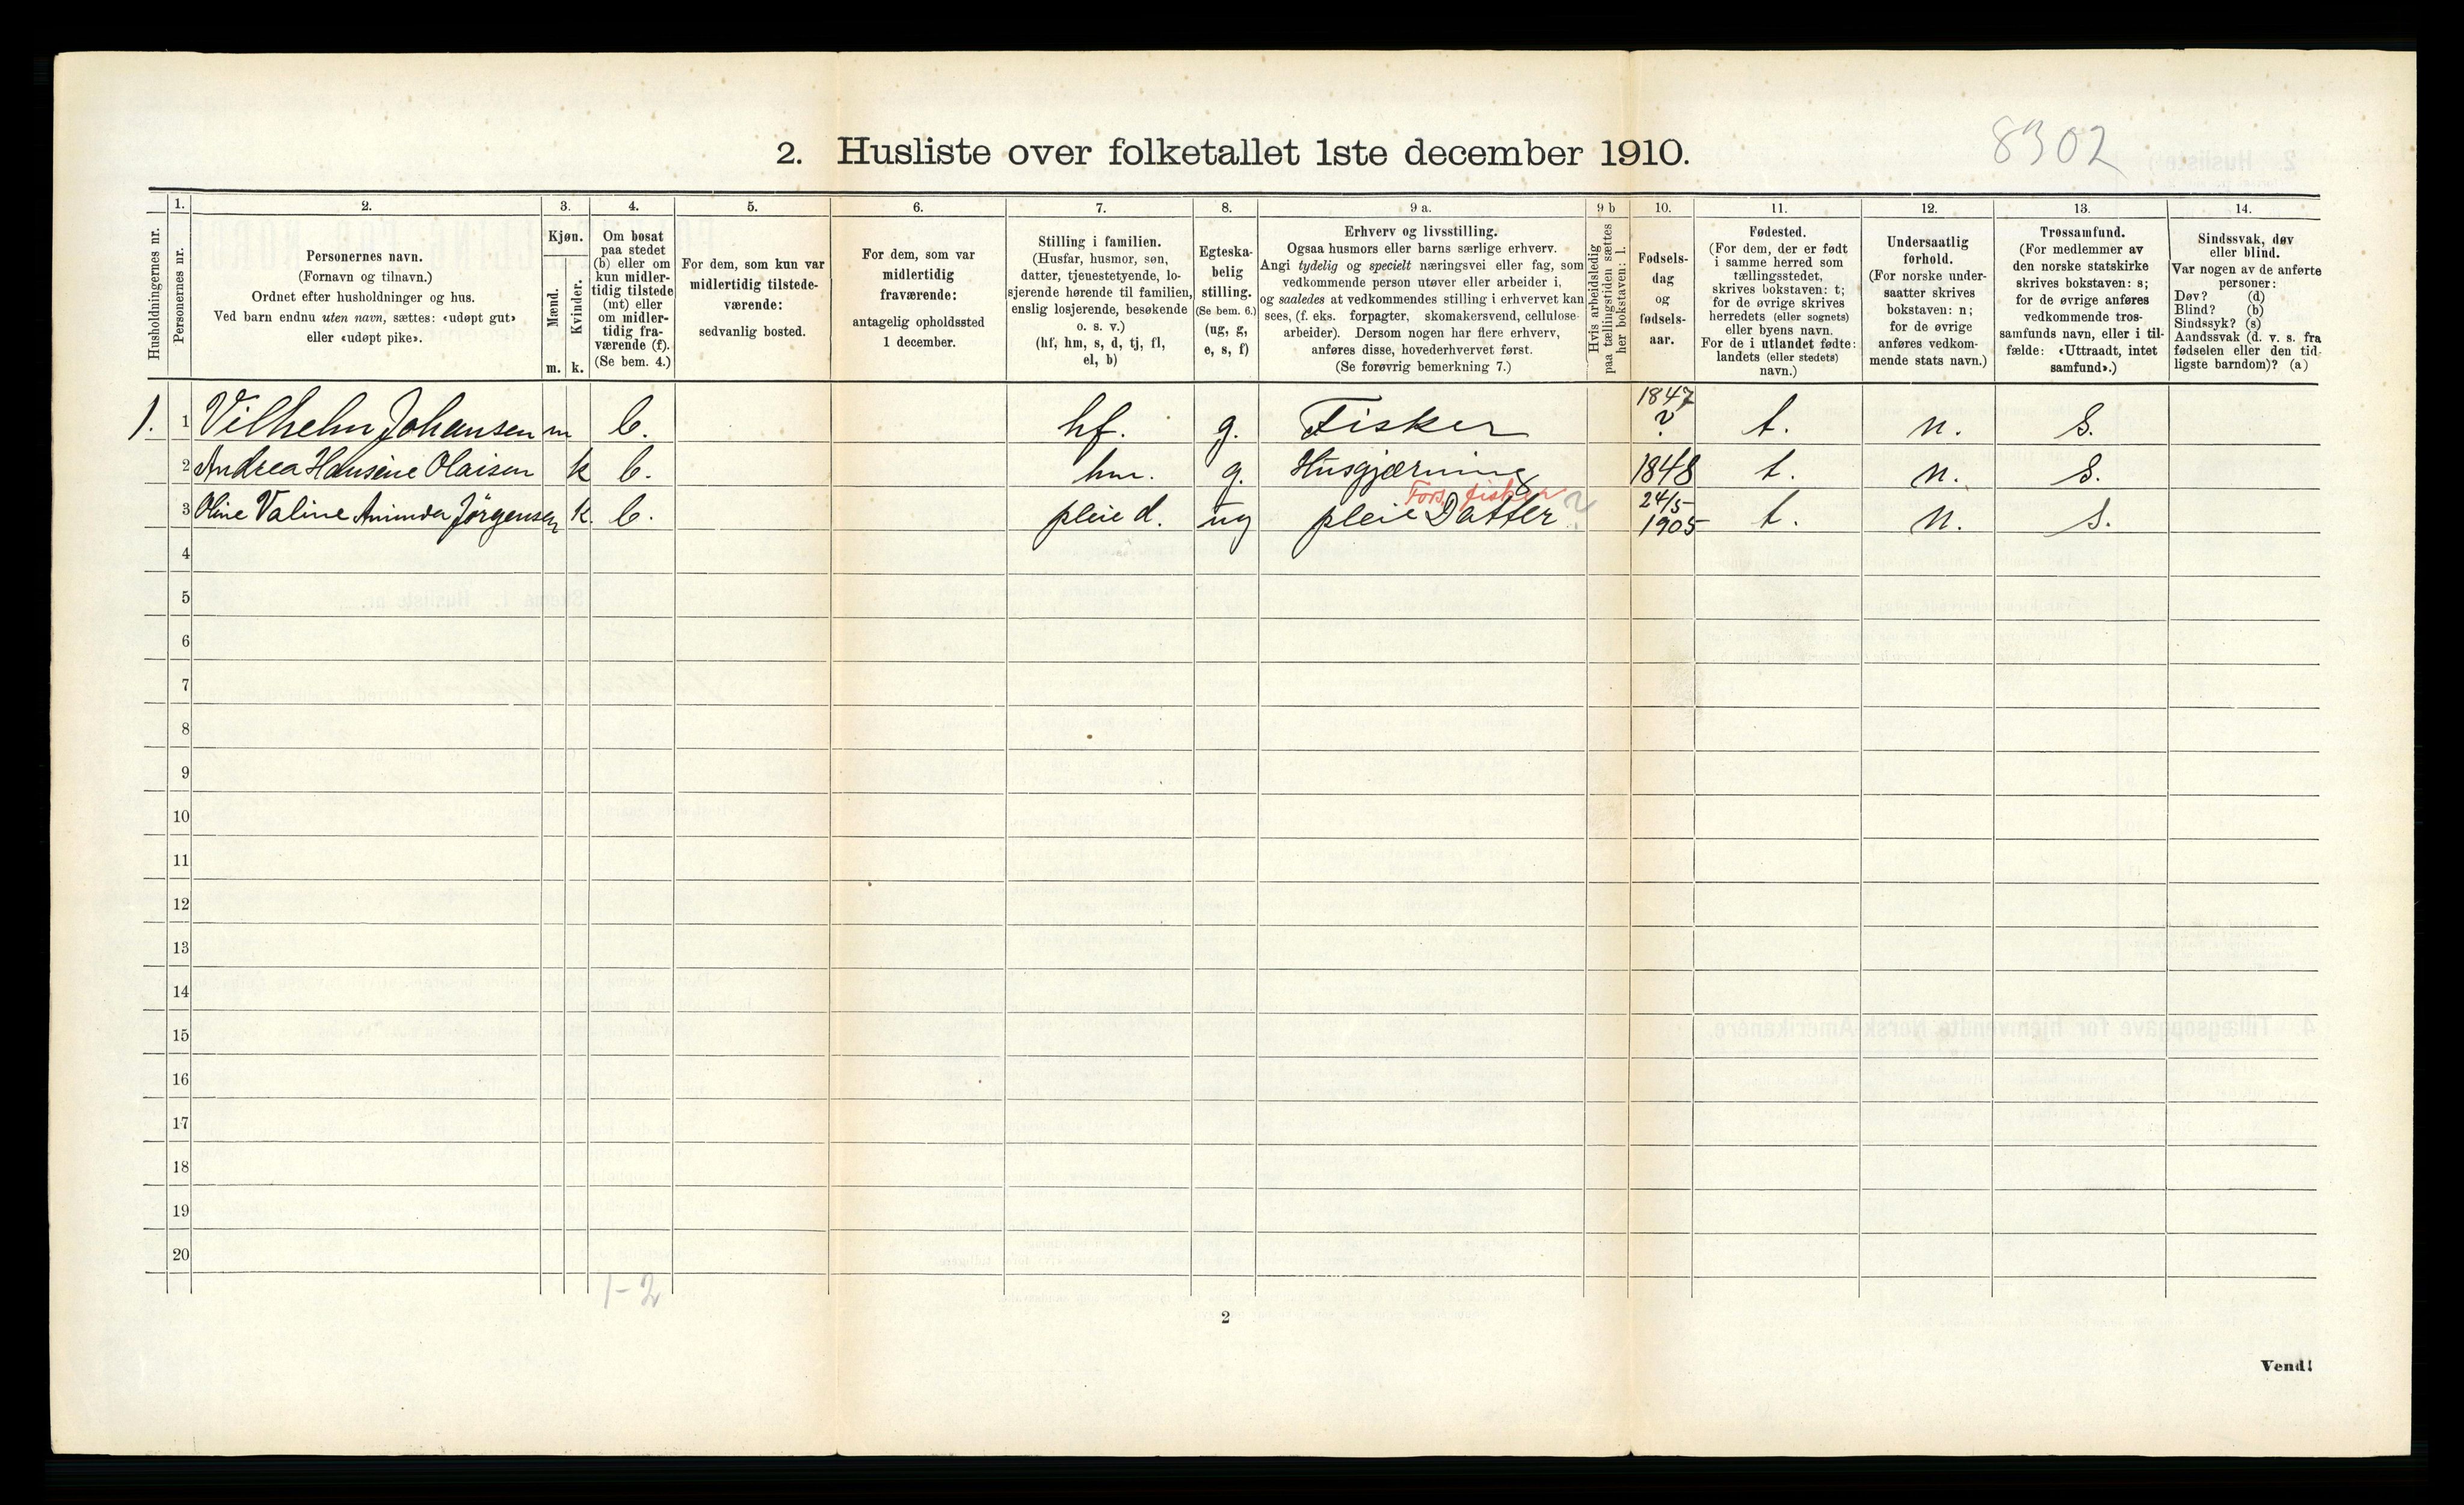 8302
2. Husliste over folketallet 1ste december 1910.
Husholdningernes nr.
1.
Personernes nr.
2.
Personernes navn.
(Fornavn og tilnavn.)
Ordnet efter husholdninger og hus.
Ved barn endnu uten navn, sættes: «udøpt gut»
eller «udøpt pike».
3.
Kjøn.
Mænd.
Kvinder.
m. k.
4.
Om bosat
paa stedet
(b) eller om
kun midler-
tidig tilstede
(mt) eller
om midler-
tidig fra-
værende (f).
(Se bem. 4.)
5.
For dem, som kun var
midlertidig tilstede-
værende:
sedvanlig bosted.
6.
For dem, som var
midlertidig
fraværende:
antagelig opholdssted
1 december.
7.
Stilling i familien.
(Husfar, husmor, søn,
datter, tjenestetyende, lo-
sjerende hørende til familien,
enslig losjerende, besøkende
o. s. v.)
(hf, hm, s, d, tj, fl,
el, b)
8.
Egteska-
belig
stilling.
(Se bem. 6.)
(ug, g,
e, s, f)
9 a.
Erhverv og livsstilling.
Ogsaa husmors eller barns særlige erhverv.
Angi tydelig og specielt næringsvei eller fag, som
vedkommende person utøver eller arbeider i,
og saaledes at vedkommendes stilling i erhvervet kan
sees, (f. eks. forpagter, skomakersvend, cellulose-
arbeider). Dersom nogen har flere erhverv,
anføres disse, hovederhvervet først.
(Se forøvrig bemerkning 7.)
9 b
Hvis arbeidsledig
paa tællingstiden sættes
her bokstaven: l.
10.
Fødsels-
dag
og
fødsels-
aar.
11.
Fødested.
(For dem, der er født
i samme herred som
tællingsstedet,
skrives bokstaven: t;
for de øvrige skrives
herredets (eller sognets)
eller byens navn.
For de i utlandet fødte:
landets (eller stedets)
navn.)
12.
Undersaatlig
forhold.
(For norske under-
saatter skrives
bokstaven: n;
for de øvrige
anføres vedkom-
mende stats navn.)
13.
Trossamfund.
(For medlemmer av
den norske statskirke
skrives bokstaven: s;
for de øvrige anføres
vedkommende tros-
samfunds navn, eller i til-
fælde: «Uttraadt, intet
samfund».)
14.
Sindssvak, døv
eller blind.
Var nogen av de anførte
personer:
Døv? (d)
Blind? (b)
Sindssyk? (s)
Aandssvak (d. v. s. fra
fødselen eller den tid-
ligste barndom)? (a)
1. 1 Vilhelm Johansen m b. hf. g. Fisker 1847 ? t. n. s.
2 Andrea Hansine Olaisen k b. hm. g. Husgjærning 1848 t. n. s.
Fors. fisker
3 Oline Valine Aminda Jörgensen k. b. pleie d. ug pleie Datter ? 24/5- 1905 t. n. s.
4
5
6
7
8
9
10
11
12
13
14
15
16
17
18
19
20
1-2
2
Vend!